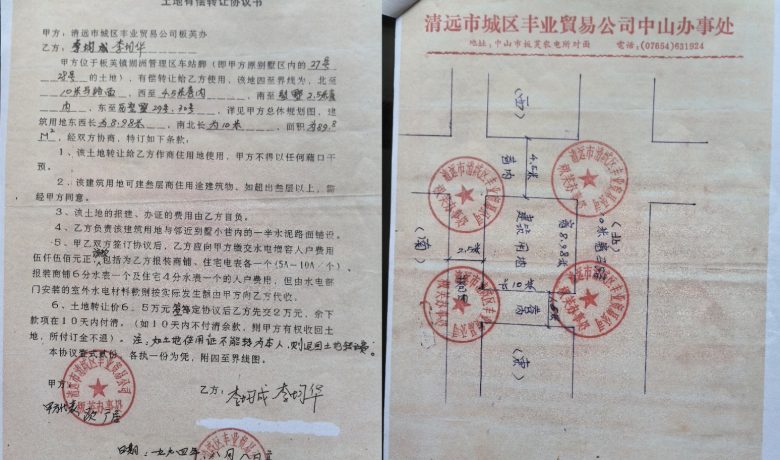 土地有偿转让协议书
甲方：清远市城区丰业贸易公司板芙办
乙方：李均成 李均华
甲方位于板芙镇湖洲管理区车站脚（即甲方原别墅区内的27号
28号的土地），有偿转让给乙方使用，该地四至界线为，北至
10米马路面，西至4.5米巷内，南至 2.5米巷
内，东至 29号、30号，详见甲方总体规划图，建
筑用地东西长为8.98米，南北长为10米，面积为89.8
M²，经双方协商，特订如下条款：
1、该土地转让给乙方作商住用地使用，甲方不得以任何藉口干
预。
2、该建筑用地可建叁层商住用途建筑物、如超出叁层以上，需
经甲方同意。
3、该土地的报建、办证的费用由乙方自负。
4、乙方负责该建筑用地与邻近别墅小巷内的一半水泥路面铺设。
5、甲乙双方签订协议后，乙方应向甲方缴交水电增容入户费用
伍仟伍佰元正，包括为乙方报装商铺、住宅电表各一个（5A—10A／个），
报装商铺6分水表一个及住宅4分水表一个的入户费用，但由水电部
门安装的室外水电材料款则按实际发生额由甲方向乙方代收。
6、土地转让价6.5万元 签定协议后乙方先交2万元，余下
款项在10天内付清。（如10天内不付清余款，则甲方有权收回土
地，所付订金不退）。注：如土地使用证不能转为本人，则退回土地转让费。
本协议壹式贰份，各执一份为凭，附四至界线图。
甲方：
乙方：李均成 李均华
甲方代表
日期：一九九四年 月八日
清远市城区丰业貿易公司中山办事处
地址：中山市板芙农电所对面 电话：(07654)631924
（西）
4.5米
巷内
（北）
（南）
2.5米
建筑用地
宽8.98米
长10米
（东）
清远市清城区丰业贸易公司
板芙办事处
清远市清城区丰业贸易公司
板芙办事处
清远市清城区丰业贸易公司
板芙办事处
清远市清城区丰业贸易公司
板芙办事处
清远市清城区丰业贸易公司
板芙办事处